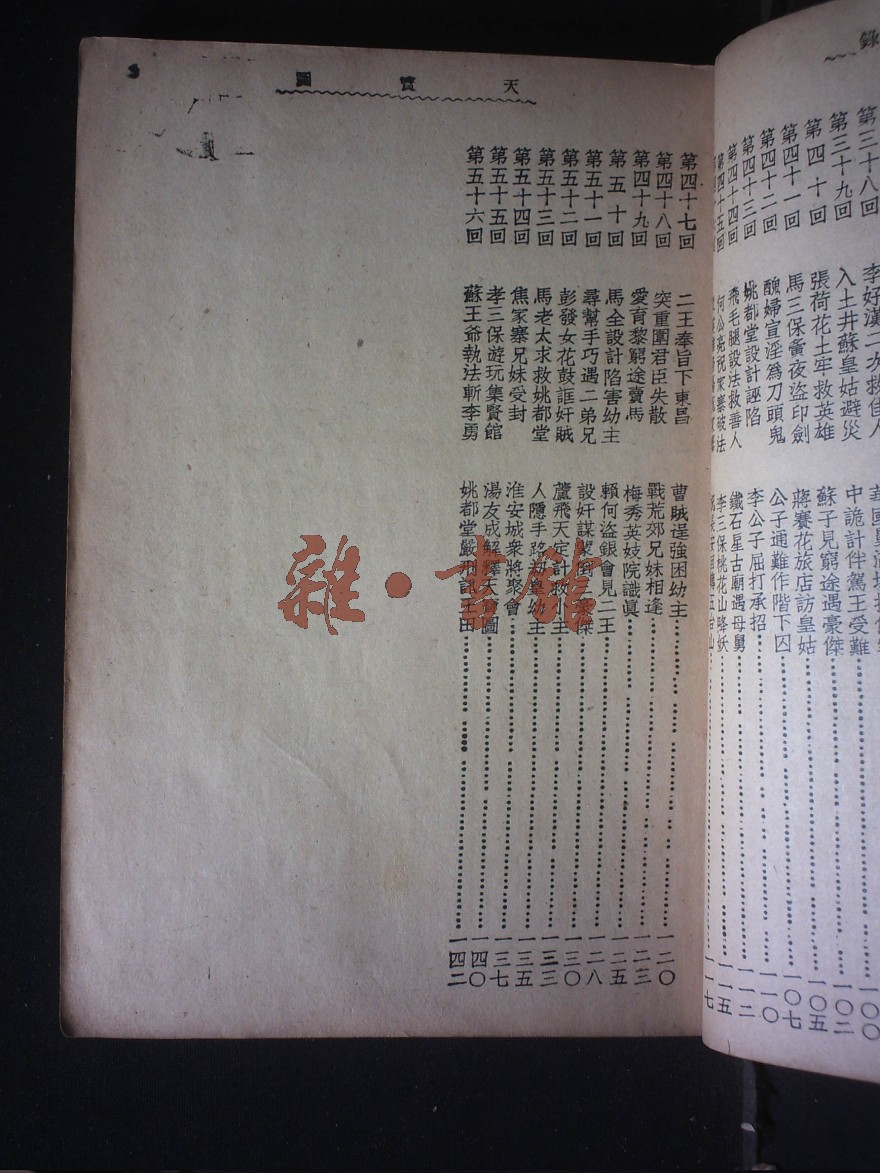 錄
第三十八回 李好漢二次救佳人
第三十九回 入土井蘇皇姑避災 中詭計伴駕王受難 一〇〇
第四十回 張荷花土牢救英雄 蘇子見窮途遇豪傑 一〇二
第四十一回 馬三保黃夜盜印劍 蔣賽花旅店訪皇姑 一〇五
第四十二回 醜婦宣淫為刀頭鬼 公子通難作階下囚 一〇七
第四十三回 姚都堂設計誣陷 李公子屈打承招 一一〇
第四十四回 飛毛腿設法救善人 鐵石星古廟遇母舅 一一二
第四十五回 何公亮祝家寨破法 李三保桃花山降妖 一一五
一一七
天寶圖
3
第四十七回 二王奉旨下東昌 曹賊逞強困幼主 一二〇
第四十八回 突重圍君臣失散 戰荒郊兄妹相逢 一二三
第四十九回 愛育黎窮途賣馬 梅秀英妓院識眞 一二五
第五十回 馬全設計陷害幼主 賴何盜銀會見二王 一二八
第五十一回 尋幫手巧遇二弟兄 設奸謀蒙倒二豪傑 一三〇
第五十二回 彭發女花鼓誆奸賊 蘆飛天定計救小主 一三三
第五十三回 馬老太求救姚都堂 人隱手路劫皇幼主 一三五
第五十四回 焦家寨兄妹受封 淮安城衆將聚會 一三七
第五十五回 孝三保遊玩集賢館 湯友成解釋天寶圖 一四〇
第五十六回 蘇王爺執法斬李勇 姚都堂嚴刑訊王田 一四二
雜·書館